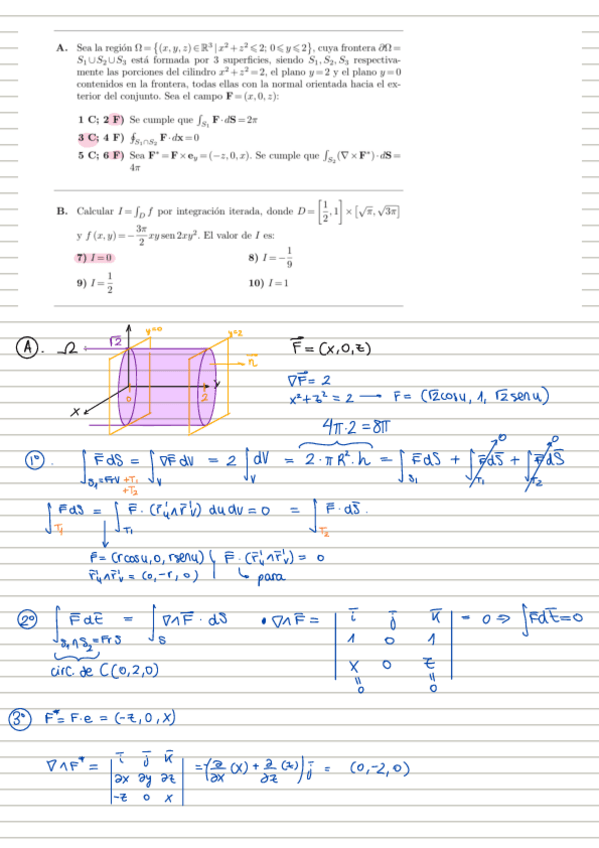 A. Sea la región Ω = {(x, y, z) ∈ ℝ³ | x² + z² ⩽ 2; 0 ⩽ y ⩽ 2}, cuya frontera ∂Ω =
S₁∪S₂∪S₃ está formada por 3 superficies, siendo S₁, S₂, S₃ respectiva-
mente las porciones del cilindro x² + z² = 2, el plano y = 2 y el plano y = 0
contenidos en la frontera, todas ellas con la normal orientada hacia el ex-
terior del conjunto. Sea el campo F = (x, 0, z):
1 C; 2 F) Se cumple que ∫_S₁ F·dS = 2π
3 C; 4 F) ∮_S₁∩S₂ F·dx = 0
5 C; 6 F) Sea F* = F × e_y = (−z, 0, x). Se cumple que ∫_S₂ (∇ × F*)·dS =
4π
B. Calcular I = ∫_D f por integración iterada, donde D = [1/2, 1] × [√π, √3π]
y f(x, y) = −3π/2 xy sen 2xy². El valor de I es:
7) I = 0 8) I = −1/9
9) I = 1/2 10) I = 1
A. Ω √2 y=0 y=2 n̄ F̄ = (x, 0, z)
x y 0 2
∇F̄ = 2
x² + z² = 2 → r̄ = (√2 cos u, 1, √2 sen u)
4π·2 = 8π
1º ∫_S₁=FrV +T₁ +T₂ F̄dS = ∫_V ∇F̄ dV = 2 ∫_V dV = 2·π R²·h = ∫_S₁ F̄dS + ∫_T₁ F̄dS̄ →0 + ∫_T₂ F̄dS̄ →0
∫_T₁ F̄dS = ∫_T₁ F̄·(r̄'u∧r̄'v) du dv = 0 = ∫_T₂ F̄·dS̄.
r̄ = (r cos u, 0, r sen u) { F̄·(r̄'u∧r̄'v) = 0
r̄'u∧r̄'v = (0, −r, 0) ↳ para
2º ∫_S₁∩S₂=FrS F̄dt̄ = ∫_S ∇∧F̄·dS • ∇∧F̄ = | ī j̄ k̄ | 1 0 1 | x 0 z | = 0 ⇒ ∫F̄dt̄ = 0
circ. de C(0,2,0) = 0 = 0
3º F* = F·e = (−z, 0, x)
∇∧F* = | ī j̄ k̄ | ∂x ∂y ∂z | −z 0 x | = −(∂/∂x (x) + ∂/∂z (z)) j̄ = (0, −2, 0)